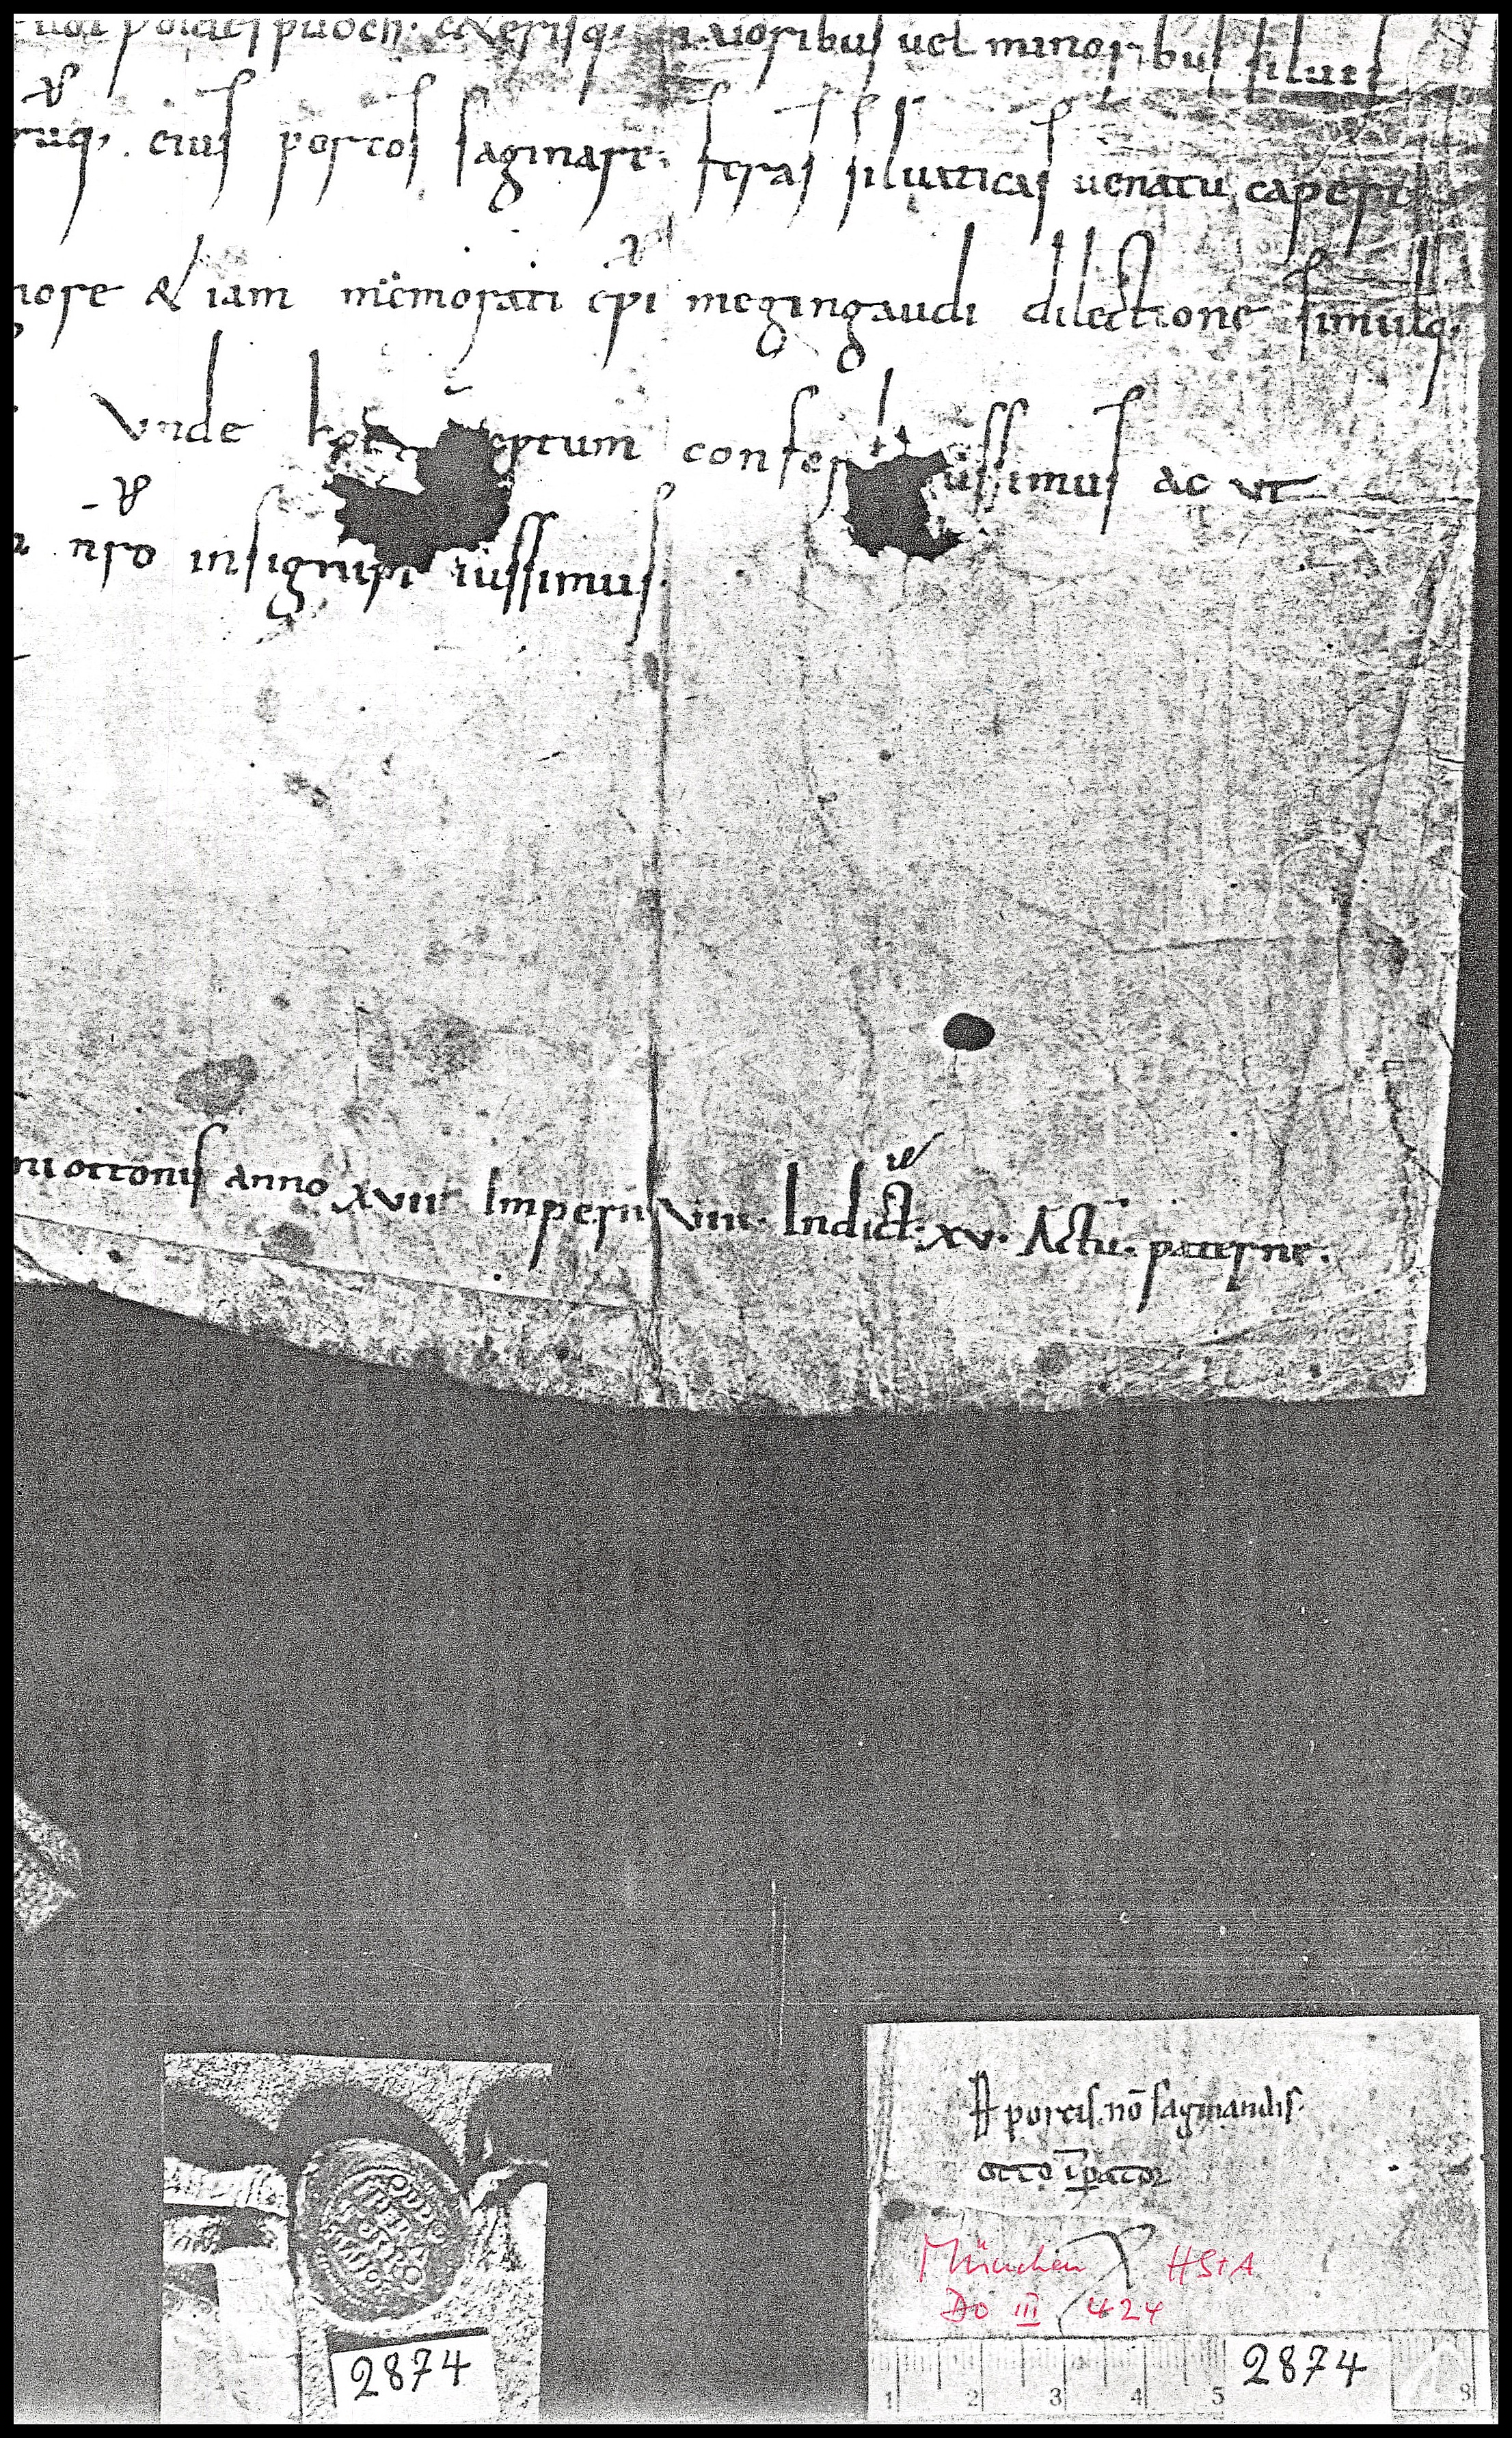 maioribus uel minoribus siluis
eius porcos saginare; feras siluaticas uenatu capere
nore & iam memorati epi megingaudi dilectione simulq;
Unde hoc eptum conser iussimus ac ut
nro insigniri iussimus.
ottonis anno XVII Imperii VIIII. Indict. XV. Actu. paterne.
A porcis no saginandis.
otto ipator
München HStA
DO III 424
2874
2874
1 2 3 4 5 8